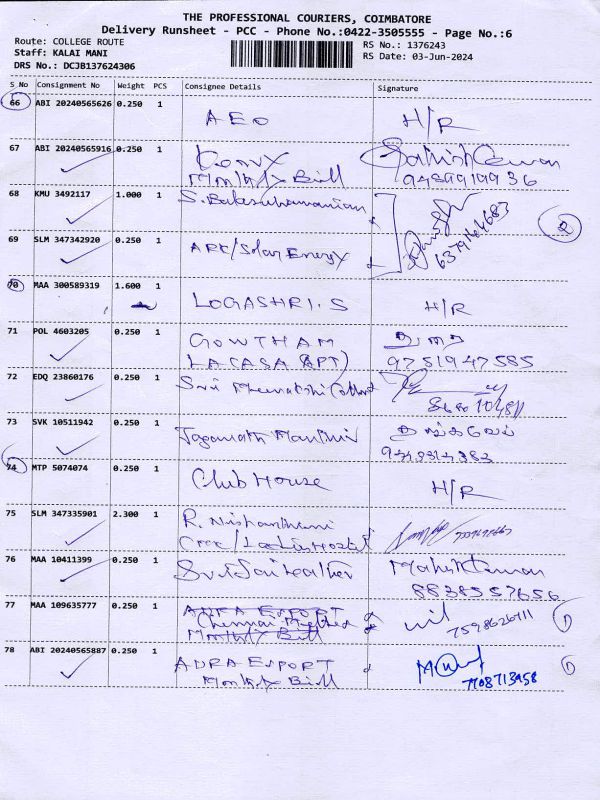 THE PROFESSIONAL COURIERS, COIMBATORE
Delivery Runsheet - PCC - Phone No.:0422-3505555 - Page No.:6
Route: COLLEGE ROUTE
RS No.: 1376243
Staff: KALAI MANI
RS Date: 03-Jun-2024
DRS No.: DCJB137624306
S_No Consignment No Weight PCS Consignee Details Signature
66 ABI 20240565626 0.250 1
AEO H/R
67 ABI 20240565916 0.250 1
Monthly Bill 9489919936
68 KMU 3492117 1.000 1 S. Balasubramanian
6379144683
69 SLM 347342920 0.250 1
ARK/Solar Energy
70 MAA 300589319 1.600 1
LOGASHRI.S H/R
71 POL 4603205 0.250 1 GOWTHAM
LACASA (APT) 9751947585
72 EDQ 23860176 0.250 1
Sri Meenakshi
73 SVK 10511942 0.250 1 தங்கவேல்
Jaganath
74 MTP 5074074 0.250 1
Club House H/R
75 SLM 347335901 2.300 1 R. Nishanthini
/Ladies Hostel
76 MAA 10411399 0.250 1 Sri Sai Leather
8838557656
77 MAA 109635777 0.250 1 AURA EXPORT
Chennai
Monthly Bill 7598626711
78 ABI 20240565887 0.250 1 AURA EXPORT
Monthly Bill 7708713958